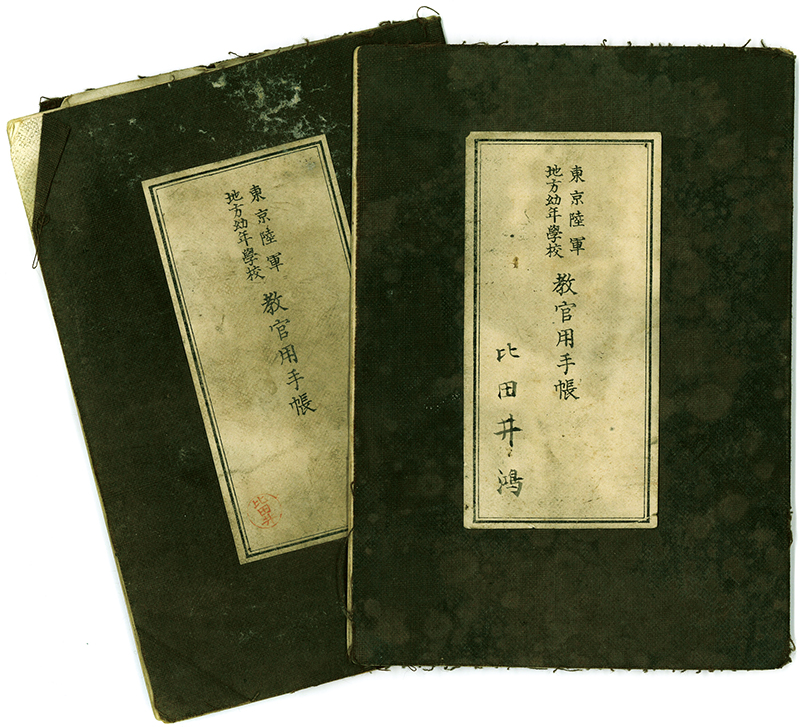 東京陸軍
地方幼年學校
教官用手帳
比田井
東京陸軍
地方幼年學校
教官用手帳
比田井鴻